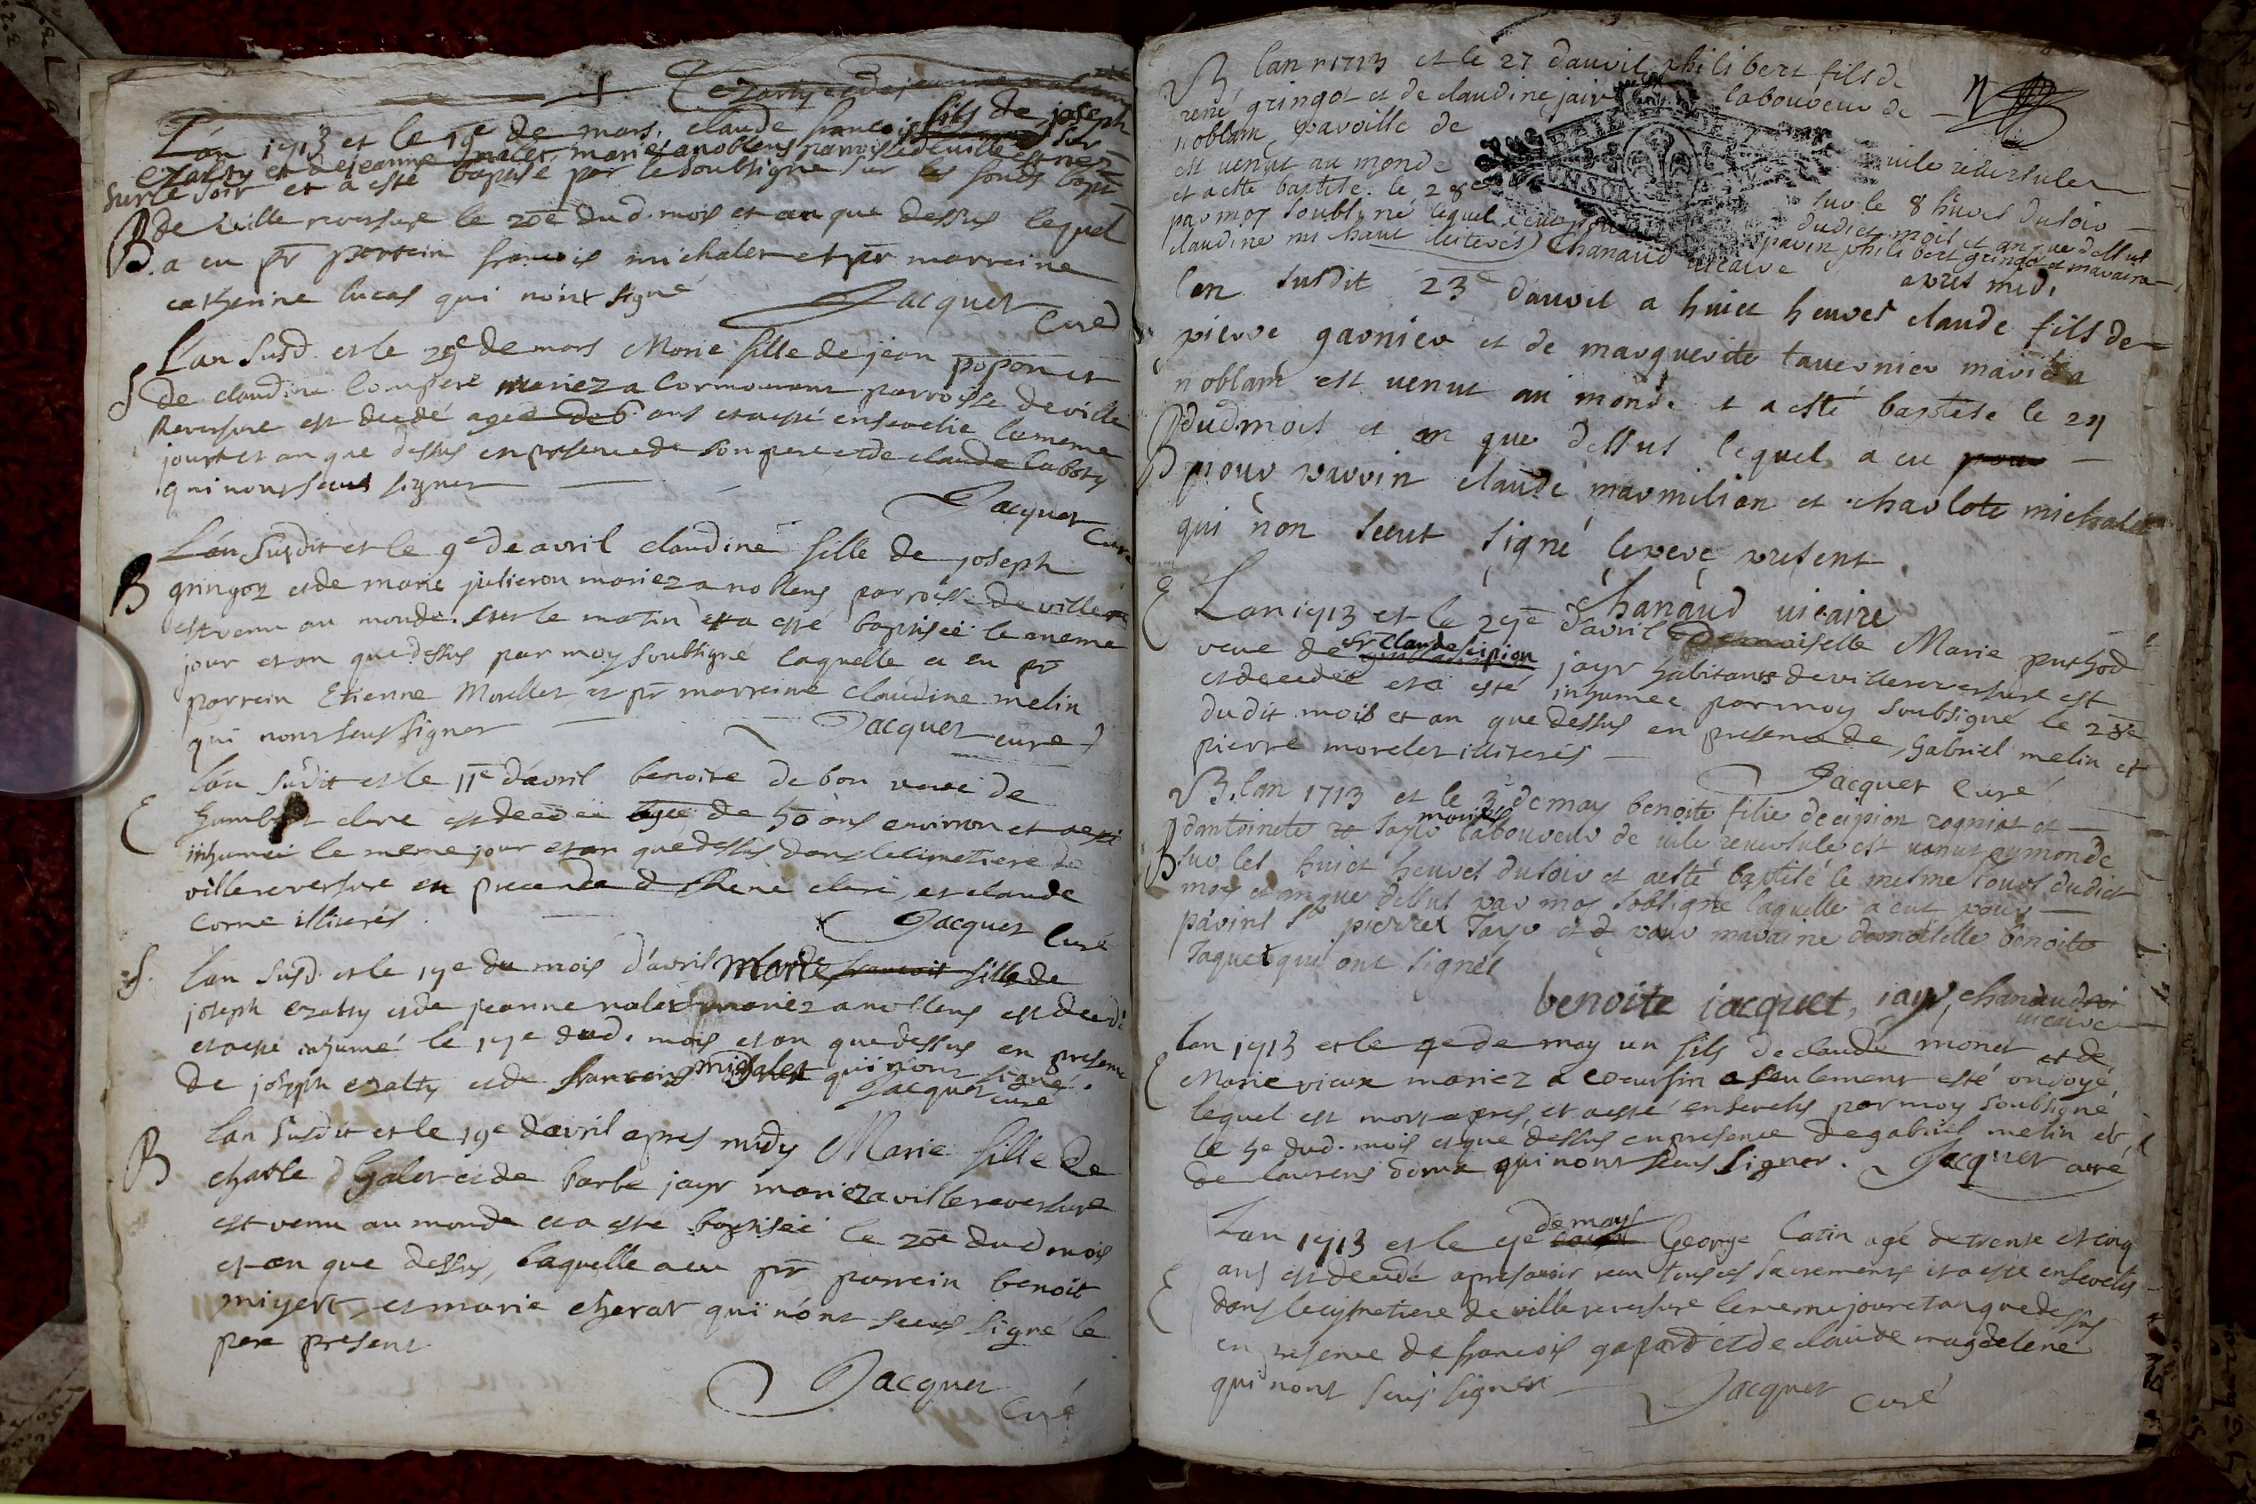 Lan 1713 et le 19e de mars, claude francois fils de joseph
ezalty et de jeanne nalet mariez a noblens parroisse de ville
sur le soir et a esté baptisé par le soubsigné sur les fonds bapt
B de ville reversure le 20e dud. mois et an que dessus lequel
a eu pr parrein francois michalet et pr marreine
catherine lucas qui n'ont signé
Jacquet curé
S L'an susd. et le 29e de mars Marie fille de jean popon et
de claudine compere mariez a cormourant parroisse de ville
Reversure est decedé agee de 6 ans et a esté ensevelie le meme
jour et an que dessus en presence de son pere et de claude
qui nont sceus signer
Jacquet curé
L'an susdit et le 9e de avril claudine fille de joseph
B gringoz et de marie julieron mariez a noblens parroisse de ville
est venu au monde sur le matin et a esté baptisée le meme
jour et an que dessus par moy soubsigné laquelle a eu pr
parrein Etienne Morellet et pr marreine claudine melin
qui nont sceus signer
Jacquet curé
L'an susdit et le 11e d'avril benoite de bon veuve de
E humbert clere est decedée agée de 50 ans environ et a esté
inhumée le meme jour et an que dessus dans le cimetiere de
ville reversure en presence de clere, et claude
corne illiterés.
Jacquet Curé
S. L'an susd. et le 17e du mois d'avril Marie francoise fille de
joseph ezalty et de jeanne nalet mariez a noblens est decedé
et a esté inhumé le 17e dud. mois et an que dessus en presence
de joseph ezalty et de francois michalet qui n'ont signé.
Jacquet curé
B Lan susdit et le 19e d'avril apres midy Marie fille de
charle et de barbe jayr mariez a ville reversure
est venu au monde et a esté baptisée le 20e dud mois
et an que dessus, laquelle a eu pr parrein benoit
migert et marie cherat qui n'ont sceus signé le
pere present
Jacquet
Curé
B lan 1713 et le 27 dauvil philibert fils de
rené gringot et de claudine jair labouveur de
noblam paroille de vile reversule
est venut au monde sur le 8 hures du soir
et a esté baptisé le 28e dudict mois et an que dessus
par moy soubsiné lequel a eu pour parin philibert gringot et maraine
claudine michaut illiterés) Chanaud vicaire
lan susdit 23e dauvil a huict heures apres midi claude fils de
pierre garnier et de marguerite tavernier mariés a
noblam est venut au monde et a esté baptisé le 24
B dud mois et an que dessus lequel a eu
pour parrin claude marmilion et charlote michalet
qui non seeut signé le pere present
Chanaud vicaire
E Lan 1713 et le 27e d'avril Demoiselle Marie puthod
veve de Sr Claude scipion jayr habitans de ville reversure est
et decedée et a esté inhumée par moy soubsigné le 28e
dudit mois et an que dessus en presence de gabriel melin et
pierre morelet illiterés
Jacquet Curé
B. lan 1713 et le 3e de may benoite filie de cipion rogniat et
dantoinete Jayr mariés labouveur de vile reversule est venut au monde
B sur les huict heuves du soir et a esté baptisé le mesme jour dudict
moy et an que dessus par moy sobsigné laquelle a eut pour
parins Sr pierre Jayr et pour maraine damoiselle benoite
Jaquet qui ont signés
benoite jacquet, jayr, chanaud vicaire
lan 1713 et le 4e de may un fils de claude monet et de
E Marie vieux mariez a coeursin a seulement esté ondoyé,
lequel est mort apres, et a esté ensevelis par moy soubsigné
le 5e dud. mois et que dessus en presence de gabriel melin et
de laurens qui nont sceus signer. Jacquet curé
Lan 1713 et le 9e de may George Catin agé de trente et cinq
ans est decedé apres avoir receu tous ces sacrements et a esté ensevelis
E dans le cymetiere de ville reversure le meme jour et an que dessus
en presence de francois gapard et de claude magdelene
qui nont sceus signer
Jacquet curé